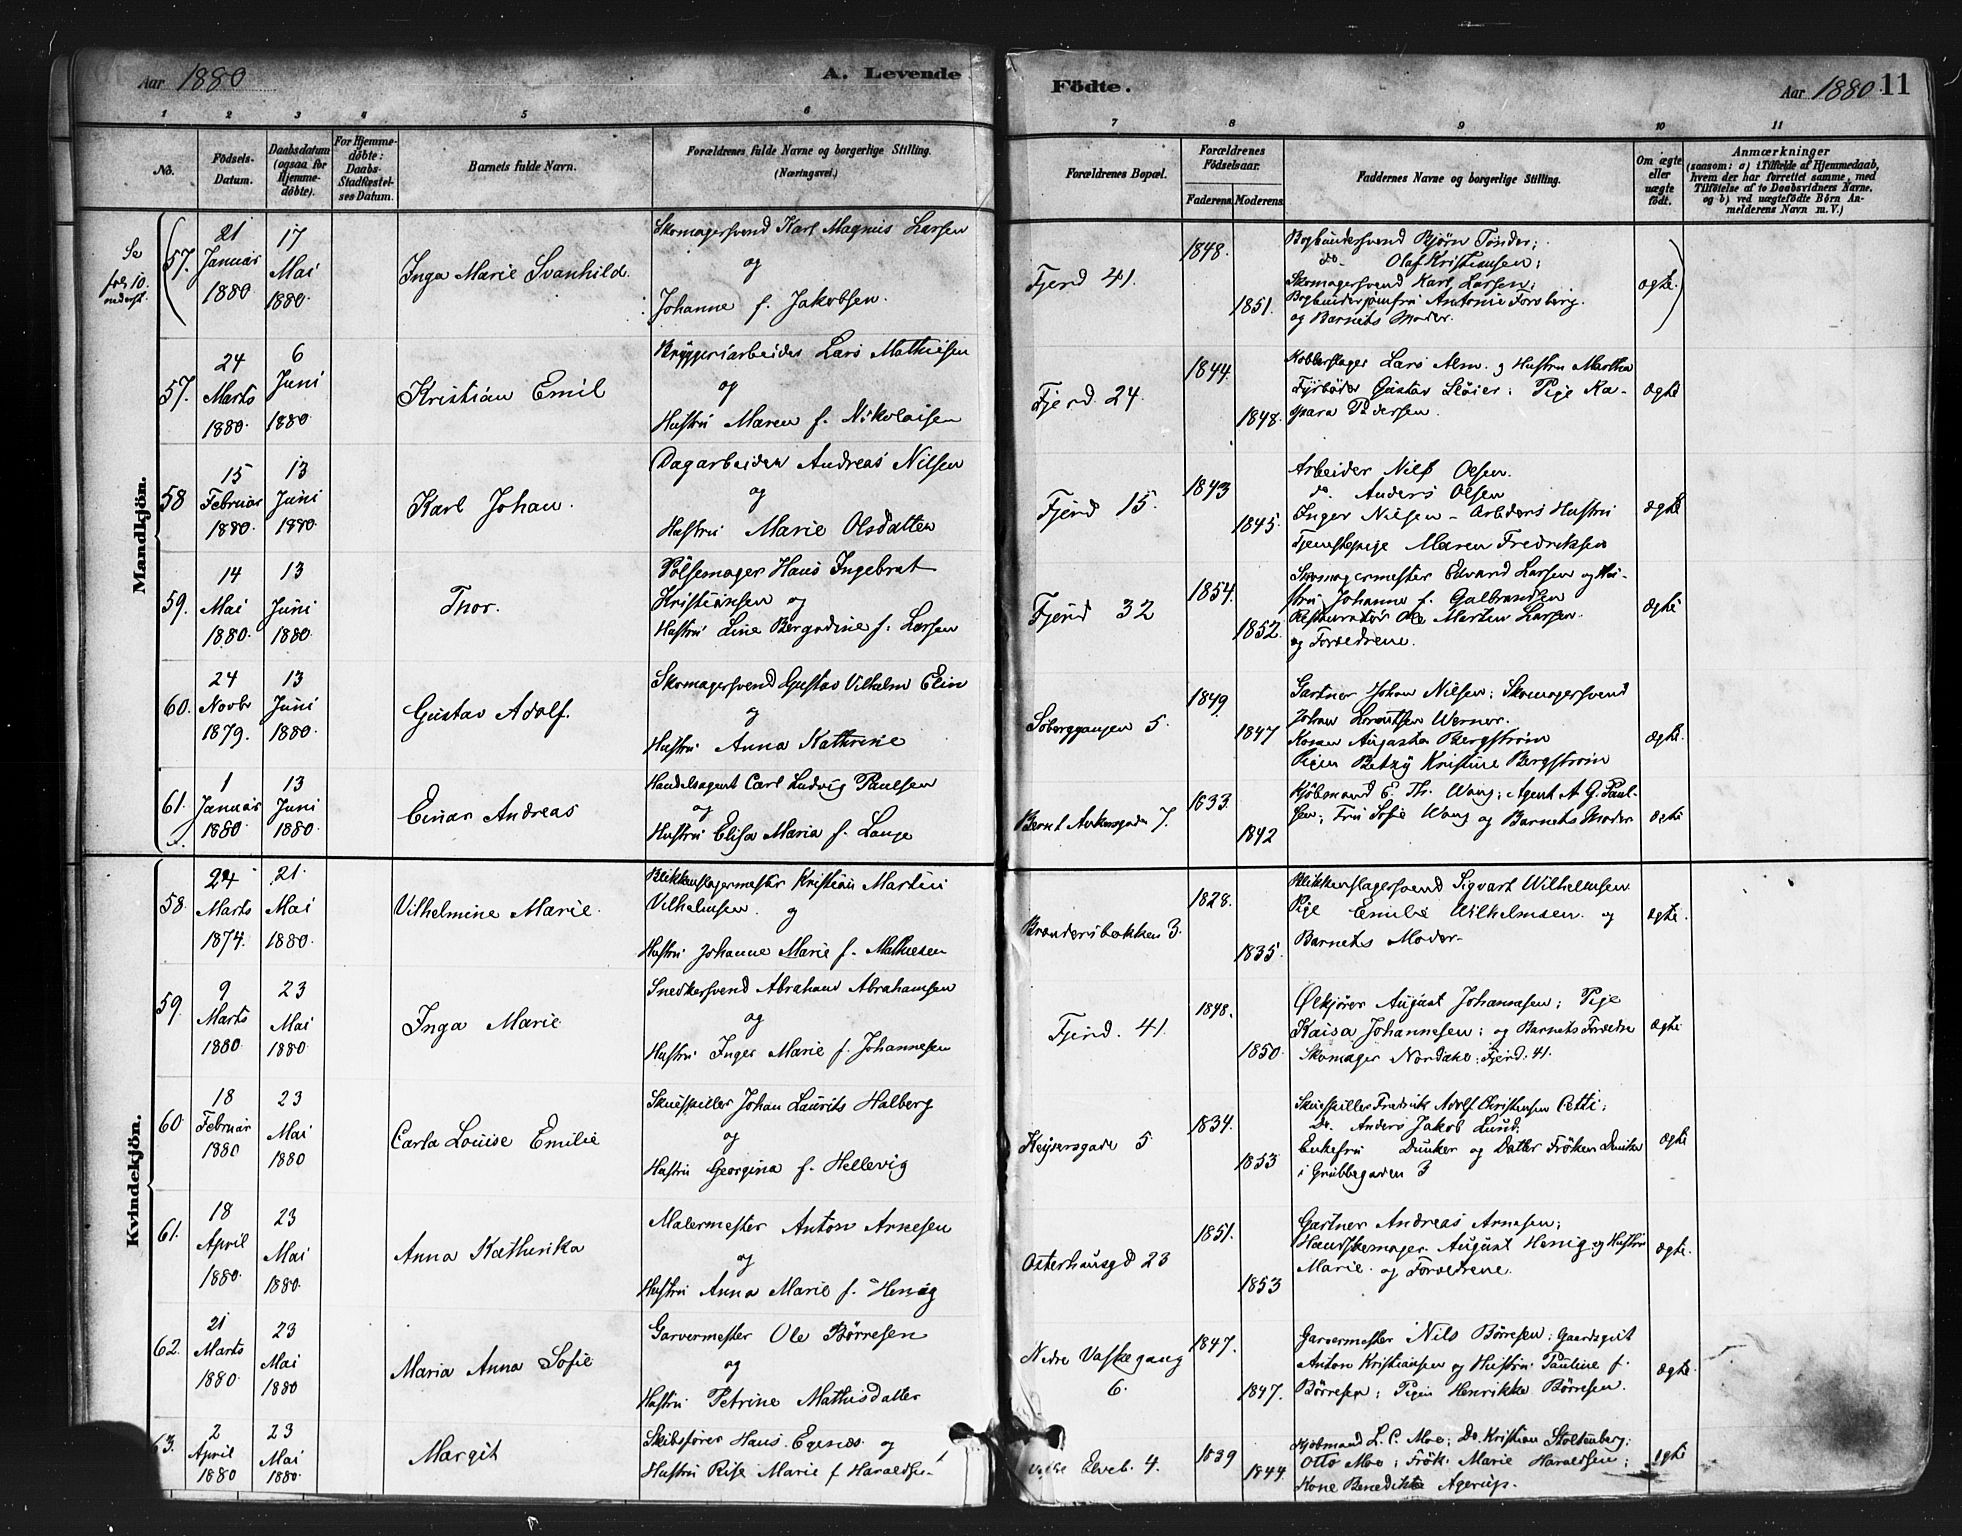 Aar 1880
A. Levende
Födte.
Aar 1880. 11
1 2 3 4 5 6 7 8 9 10 11
No.
Födsels-Datum.
Daabsdatum (ogsaa for Hjemmedöbte).
For Hjemmedöbte: Daabs Stadfæstelses Datum.
Barnets fulde Navn.
Forældrenes fulde Navne og borgerlige Stilling. (Næringsvei.)
Forældrenes Bopæl.
Forældrenes Födselsaar.
Faderens. Moderens.
Faddernes Navne og borgerlige Stilling.
Om ægte eller uægte født.
Anmærkninger
(saasom: a) i Tilfælde af Hjemmedaab, hvem der har forrettet samme, med Tilföielse af to Daabsvidners Navne, og b) ved uægtefödte Börn Anmelderens Navn m. V.)
Mandkjön.
Se fol. 10. nederst.
57. 21 Januar 1880 17 Mai 1880. Inga Marie Svanhild.
Skomagersvend Karl Magnus Larsen
og
Johanne f. Jakobsen.
Fjerd 41. 1848. 1851.
Bogbindersvend Björn Tönder;
do. Olaf Kristiansen;
Skomagersvend Karl Larsen;
Bogbinderjomfru Antonie Forsberg
og Barnets Moder.
ægte
57. 24 Marts 1880. 6 Juni 1880 Kristian Emil
Bryggeriarbeider Lars Mathisen
og
Hustru Maren f. Nikolaisen
Fjerd. 24. 1844. 1848.
Kobberslager Lars Alm. og Hustru Martha
Fyrböder Gustav Slöier; Pige Ka-
spara Pedersen.
ægte
58 15 Februar 1880. 13 Juni 1880. Karl Johan.
Dagarbeider Andreas Nilsen
og
Hustru Marie Olsdatter
Fjerd 15. 1843 1845.
Arbeider Nils Olsen.
do. Anders Olsen
Inger Nilsen - Arbeiders Hustru
Tjenestepige Maren Fredriksen
ægte
59. 14 Mai 1880. 13 Juni 1880. Thor.
Pölsemager Hans Ingebret
Kristiansen og
Hustru Line Bergadine f. Larsen
Fjerd 32 1854. 1852.
Skomagermester Edvard Larsen og Hu-
stru Johanne f. Gulbrandsen
Restauratör Ole Martin Larsen.
og Forældrene.
ægte
60. 24 Novbr 1879. 13 Juni 1880. Gustav Adolf.
Skomagersvend Gustav Vilhelm Elin
og
Hustru Anna Kathrine
Söberggangen 5. 1849. 1847
Gartner Johan Nilsen; Skomagersvend
Johan Lorentsen Werner.
Konen Augusta Bergström
Pigen Betzy Kristine Bergström
ægte.
61. 1 Januar 1880. 13 Juni 1880. Einar Andreas
Handelsagent Carl Ludvig Paulsen
og
Hustru Elisa Maria f. Lange
Bernt Ankersgade 7. 1833. 1842
Kjöbmand E. Th. Wang; Agent A. G. Paul-
sen; Fru Sofie Wang og Barnets Moder
ægte
Kvindekjön.
58. 24 Marts 1874. 21. Mai 1880. Vilhelmine Marie.
Blikkenslagermester Kristian Martin
Vilhelmsen og
Hustru Johanne Marie f. Mathiesen
Brændersbakken 3. 1828. 1835.
Blikkenslagersvend Sigvart Wilhelmsen
Pige Emilie Wilhelmsen og
Barnets Moder.
ægte.
59. 9 Marts 1880 23 Mai 1880 Inga Marie
Snedkersvend Abraham Abrahamsen
og
Hustru Inger Marie f. Johannesen
Fjerd. 41. 1848. 1850.
Ölkjörer August Johannesen; Pige
Kaisa Johannesen; og Barnets Forældre
Skomager Nordake; Fjerd. 41.
ægte
60. 18 Februar 1880 23 Mai 1880 Carla Louise Emilie
Skuespiller Johan Laurits Halberg
og
Hustru Georgina f. Hellevig
Keysersgade 5 1834. 1853
Skuespiller Fredrik Adolf Christensen Cetti;
Do. Anders Jakob Lund.
Enkefru Dunker og Datter Fröken Dunker
i Grubbegaden 3
ægte
61. 18 April 1880. 23 Mai 1880. Anna Kathinka
Malermester Anton Arnesen
og
Hustru Anna Marie f. Henig
Osterhausgd 23 1851. 1853
Gartner Andreas Arnesen;
Handskemager August Henig og Hustru
Marie og Forældrene.
ægte.
62. 21 Marts 1880. 23 Mai 1880 Maria Anna Sofie
Garvermester Ole Börresen
og
Hustru Petrine Mathisdatter
Nedre Vaskegang 6. 1847. 1847.
Garvermester Nils Börresen; Gaardsgut
Anton Kristiansen og Hustru Pauline f.
Börresen; Pigen Henrikke Börresen.
ægte.
63. 2 April 1880 23 Mai 1880. Margit
Skibsförer Hans Egenæs og
Hustru Rise Marie f Haraldsen
Elveb. 4. 1839 1844.
Kjöbmand L. C. Moe; Do. Kristian Stoltenberg;
Otto Moe; Frök. Marie Haraldsen;
Kone Benedikte Agerup.
ægte